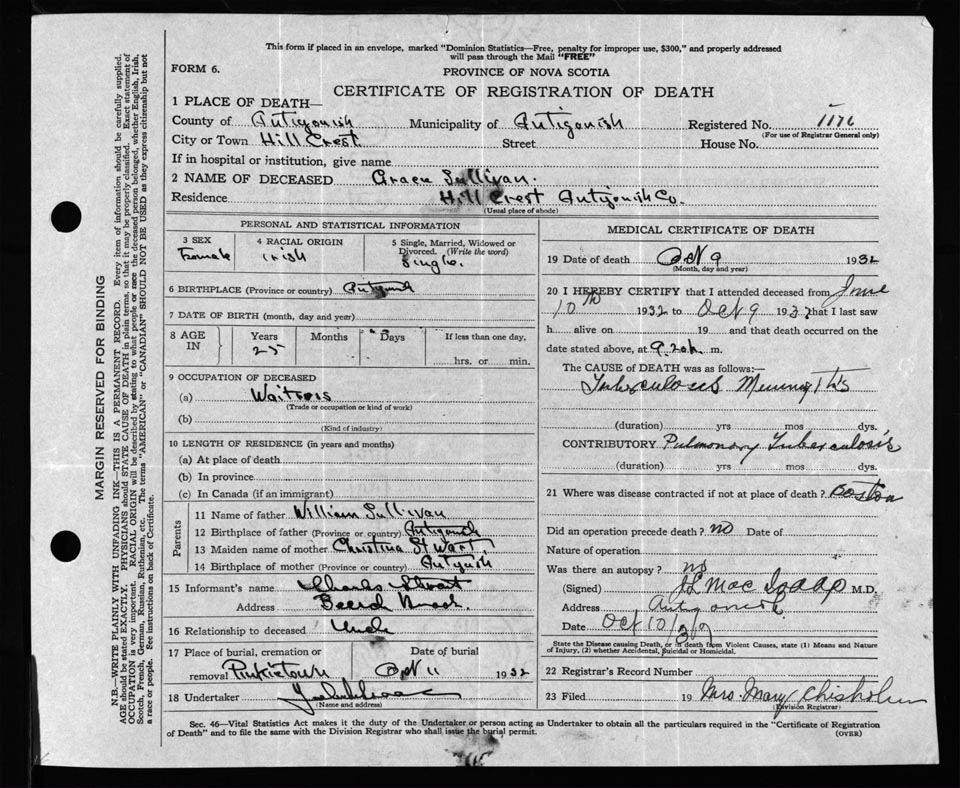 This form if placed in an envelope, marked "Dominion Statistics—Free, penalty for improper use, $300," and properly addressed
will pass through the Mail "FREE"
FORM 6.
PROVINCE OF NOVA SCOTIA
CERTIFICATE OF REGISTRATION OF DEATH
1 PLACE OF DEATH—
County of Antigonish Municipality of Antigonish Registered No. 1176
(For use of Registrar General only)
City or Town Hill Crest Street House No.
If in hospital or institution, give name
2 NAME OF DECEASED Grace Sullivan.
Residence Hill Crest Antigonish Co.
(Usual place of abode)
PERSONAL AND STATISTICAL INFORMATION
3 SEX
Female
4 RACIAL ORIGIN
Irish
5 Single, Married, Widowed or
Divorced. (Write the word)
Single.
6 BIRTHPLACE (Province or country) Antigonish
7 DATE OF BIRTH (month, day and year)
8 AGE IN
Years Months Days If less than one day,
25
hrs. or min.
9 OCCUPATION OF DECEASED
(a) Waitress
(Trade or occupation or kind of work)
(b)
(Kind of industry)
10 LENGTH OF RESIDENCE (in years and months)
(a) At place of death
(b) In province
(c) In Canada (if an immigrant)
Parents
11 Name of father William Sullivan
12 Birthplace of father (Province or country) Antigonish
13 Maiden name of mother Christina Stwart
14 Birthplace of mother (Province or country) Antigonish
15 Informant's name Charles Stwart
Address Beech
16 Relationship to deceased Uncle
17 Place of burial, cremation or removal Date of burial
Pinkietown Oct 11 1932
18 Undertaker
(Name and address)
MEDICAL CERTIFICATE OF DEATH
19 Date of death Oct 9 1932
(Month, day and year)
20 I HEREBY CERTIFY that I attended deceased from June
10th 1932 to Oct 9 1932 that I last saw
h alive on 19 and that death occurred on
date stated above, at m.
The CAUSE OF DEATH was as follows:—
Tuberculous Meningitis
(duration) yrs mos dys.
CONTRIBUTORY Pulmonary Tuberculosis
(duration) yrs mos dys.
21 Where was disease contracted if not at place of death? Boston
Did an operation precede death? no Date of
Nature of operation
Was there an autopsy? no
(Signed) M.D.
Address Antigonish
Date Oct 10
State the Disease causing Death, or in death from Violent Causes, state (1) Means and Nature
of Injury, (2) whether Accidental, Suicidal or Homicidal.
22 Registrar's Record Number
23 Filed 19 Mrs. Mary Chisholm
(Division Registrar)
Sec. 46—Vital Statistics Act makes it the duty of the Undertaker or person acting as Undertaker to obtain all the particulars required in the "Certificate of Registration
of Death" and to file the same with the Division Registrar who shall issue the burial permit.
(OVER)
MARGIN RESERVED FOR BINDING
N.B.—WRITE PLAINLY WITH UNFADING INK—THIS IS A PERMANENT RECORD. Every item of information should be carefully supplied.
AGE should be stated EXACTLY. PHYSICIANS should STATE CAUSE OF DEATH in plain terms, so that it may be properly classified. Exact statement of
OCCUPATION is very important. RACIAL ORIGIN will be described by stating to what people or race the deceased person belonged, whether English, Irish,
Scotch, French, German, Russian, Ruthenian, etc. The terms "AMERICAN" or "CANADIAN" SHOULD NOT BE USED as they express citizenship but not
a race or people. See instructions on back of Certificate.